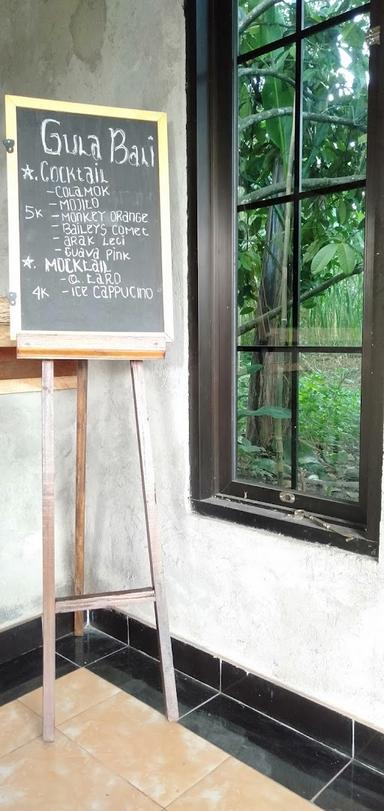 Gula Bali
☆. Cocktail
- Colamok
- Mojito
5K - Monkey Orange
- Baileys Comet
- Arak Leci
- Guava Pink
☆. Mocktail
- Q. Taro
4K - Ice Cappucino